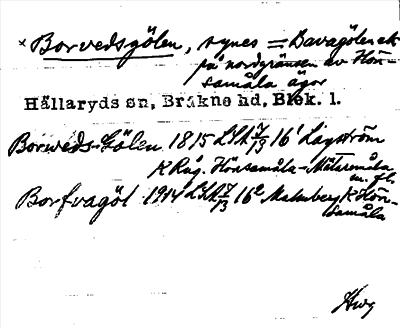 × Borvedsgölen, synes = Bavagölen ek
på nordgränsen av Hön-
samåla ägor
Hällaryds sn, Bräkne hd, Blek. l.
Borweds-Gölen 1815 LSA 7/13 16¹ Lagström
K Råg. Hönsemåla-Mölsemåla
m. fl.
Borfvagöl 1914 LSA 7/13 16² Malmberg K Hön-
samåla
Hwg